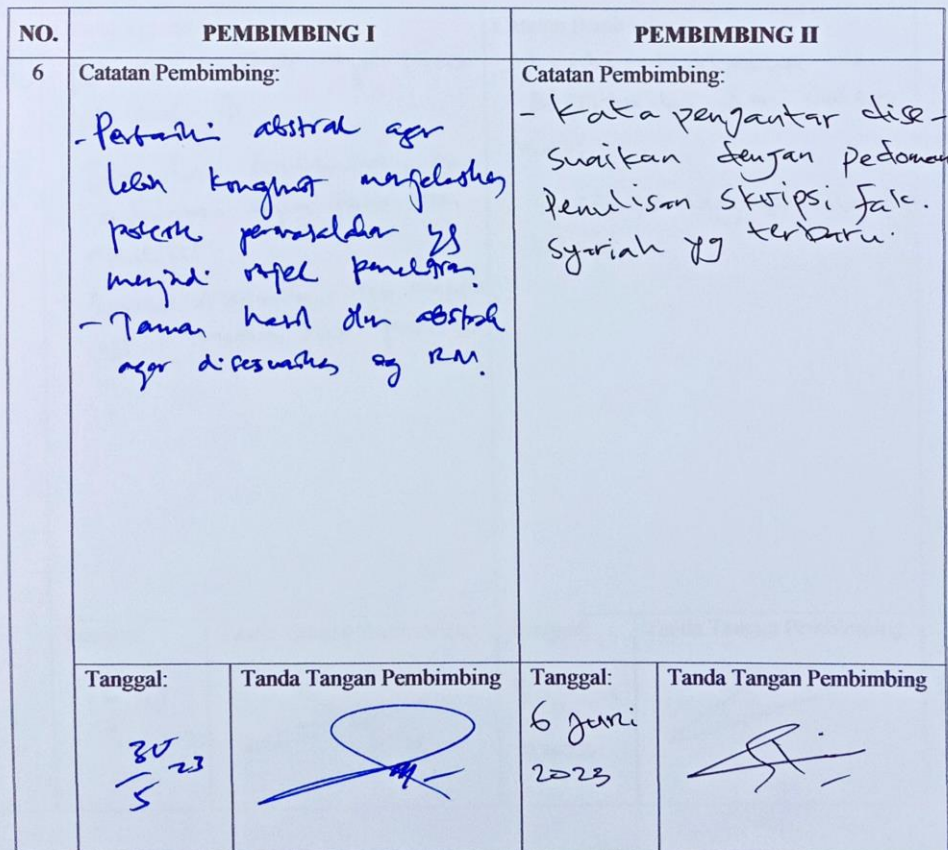 NO. PEMBIMBING I PEMBIMBING II
6 Catatan Pembimbing:
- Perbaiki abstrak agar
lebih menjelaskan
permasalahan yg
menjadi objek penelitian
- hasil dlm abstrak
agar disesuaikan dg RM.
Catatan Pembimbing:
- Kata pengantar dise-
suaikan dengan pedoman
Penulisan skripsi fak.
syariah yg terbaru.
Tanggal: Tanda Tangan Pembimbing Tanggal: Tanda Tangan Pembimbing
6 Juni
2023